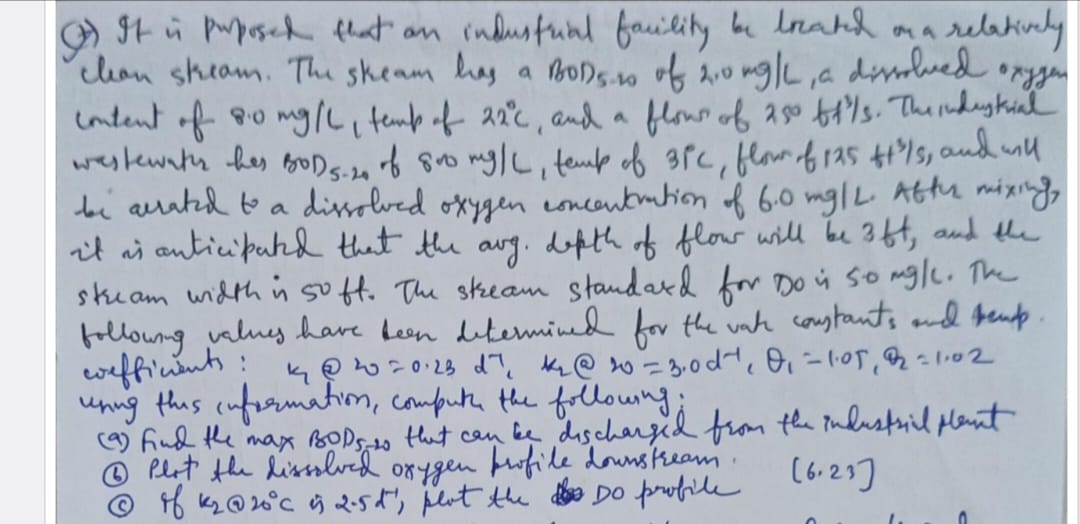 Q) It is purposed that an industrial facility be located on a relatively
clean stream. The stream has a BOD5-20 of 2.0 mg/L, a dissolved oxygen
content of 8.0 mg/L, temp of 22°C, and a flow of 250 ft³/s. The industrial
wastewater has BOD5-20 of 800 mg/L, temp of 31°C, flow of 125 ft³/s, and will
be aerated to a dissolved oxygen concentration of 6.0 mg/L. After mixing,
it is anticipated that the avg. depth of flow will be 3 ft, and the
stream width is 50 ft. The stream standard for DO is 5.0 mg/L. The
following values have been determined for the rate constants and temp.
coefficients : k1 @ 20 = 0.23 d-1, k2 @ 20 = 3.0 d-1, θ1 = 1.05, θ2 = 1.02
using this information, compute the following:
(a) Find the max BOD5-20 that can be discharged from the industrial plant
(b) Plot the dissolved oxygen profile downstream. [6.23]
(c) If k2 @ 20°C is 2.5 d-1, plot the DO profile